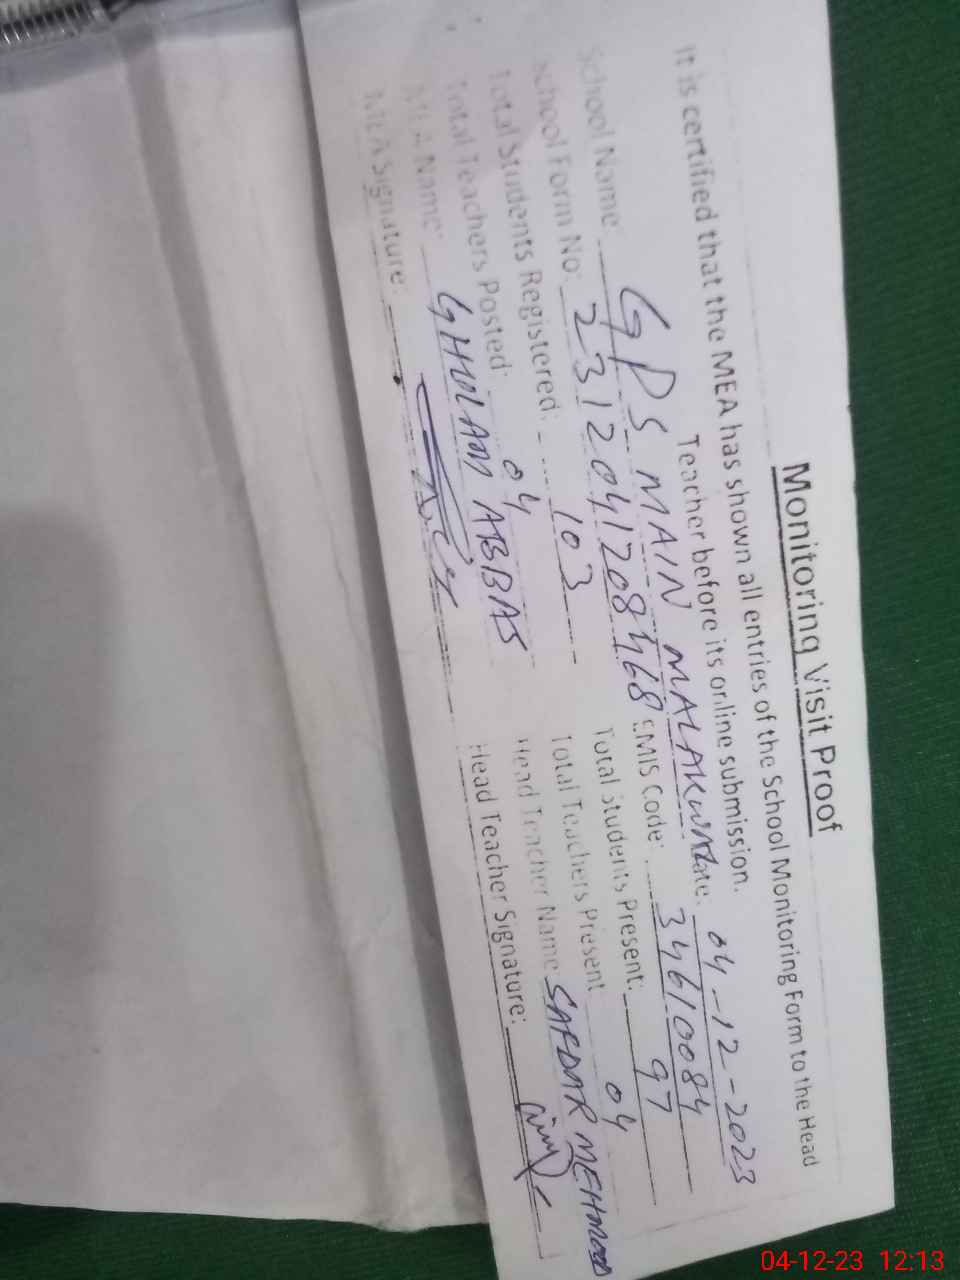 Monitoring Visit Proof
It is certified that the MEA has shown all entries of the School Monitoring Form to the Head
Teacher before its online submission.
School Name: GPS MAIN MALAKWAL Date: 04-12-2023
School Form No: 2312041208468 EMIS Code: 34610084
Total Students Registered: 103 Total Students Present: 97
Total Teachers Posted: 04 Total Teachers Present 04
MEA Name: GHULAM ABBAS Head Teacher Name: SAFDAR MEHMOOD
MEA Signature: Head Teacher Signature:
04-12-23 12:13